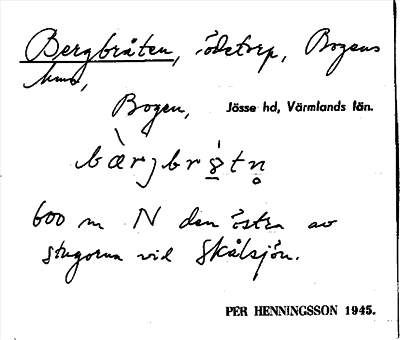 Bergbråten, ödetorp, Bogens
hmn,
Bogen, Jösse hd, Värmlands län.
bærjbrotn
600 m N den östra av
stugorna vid Skålsjön.
PER HENNINGSSON 1945.